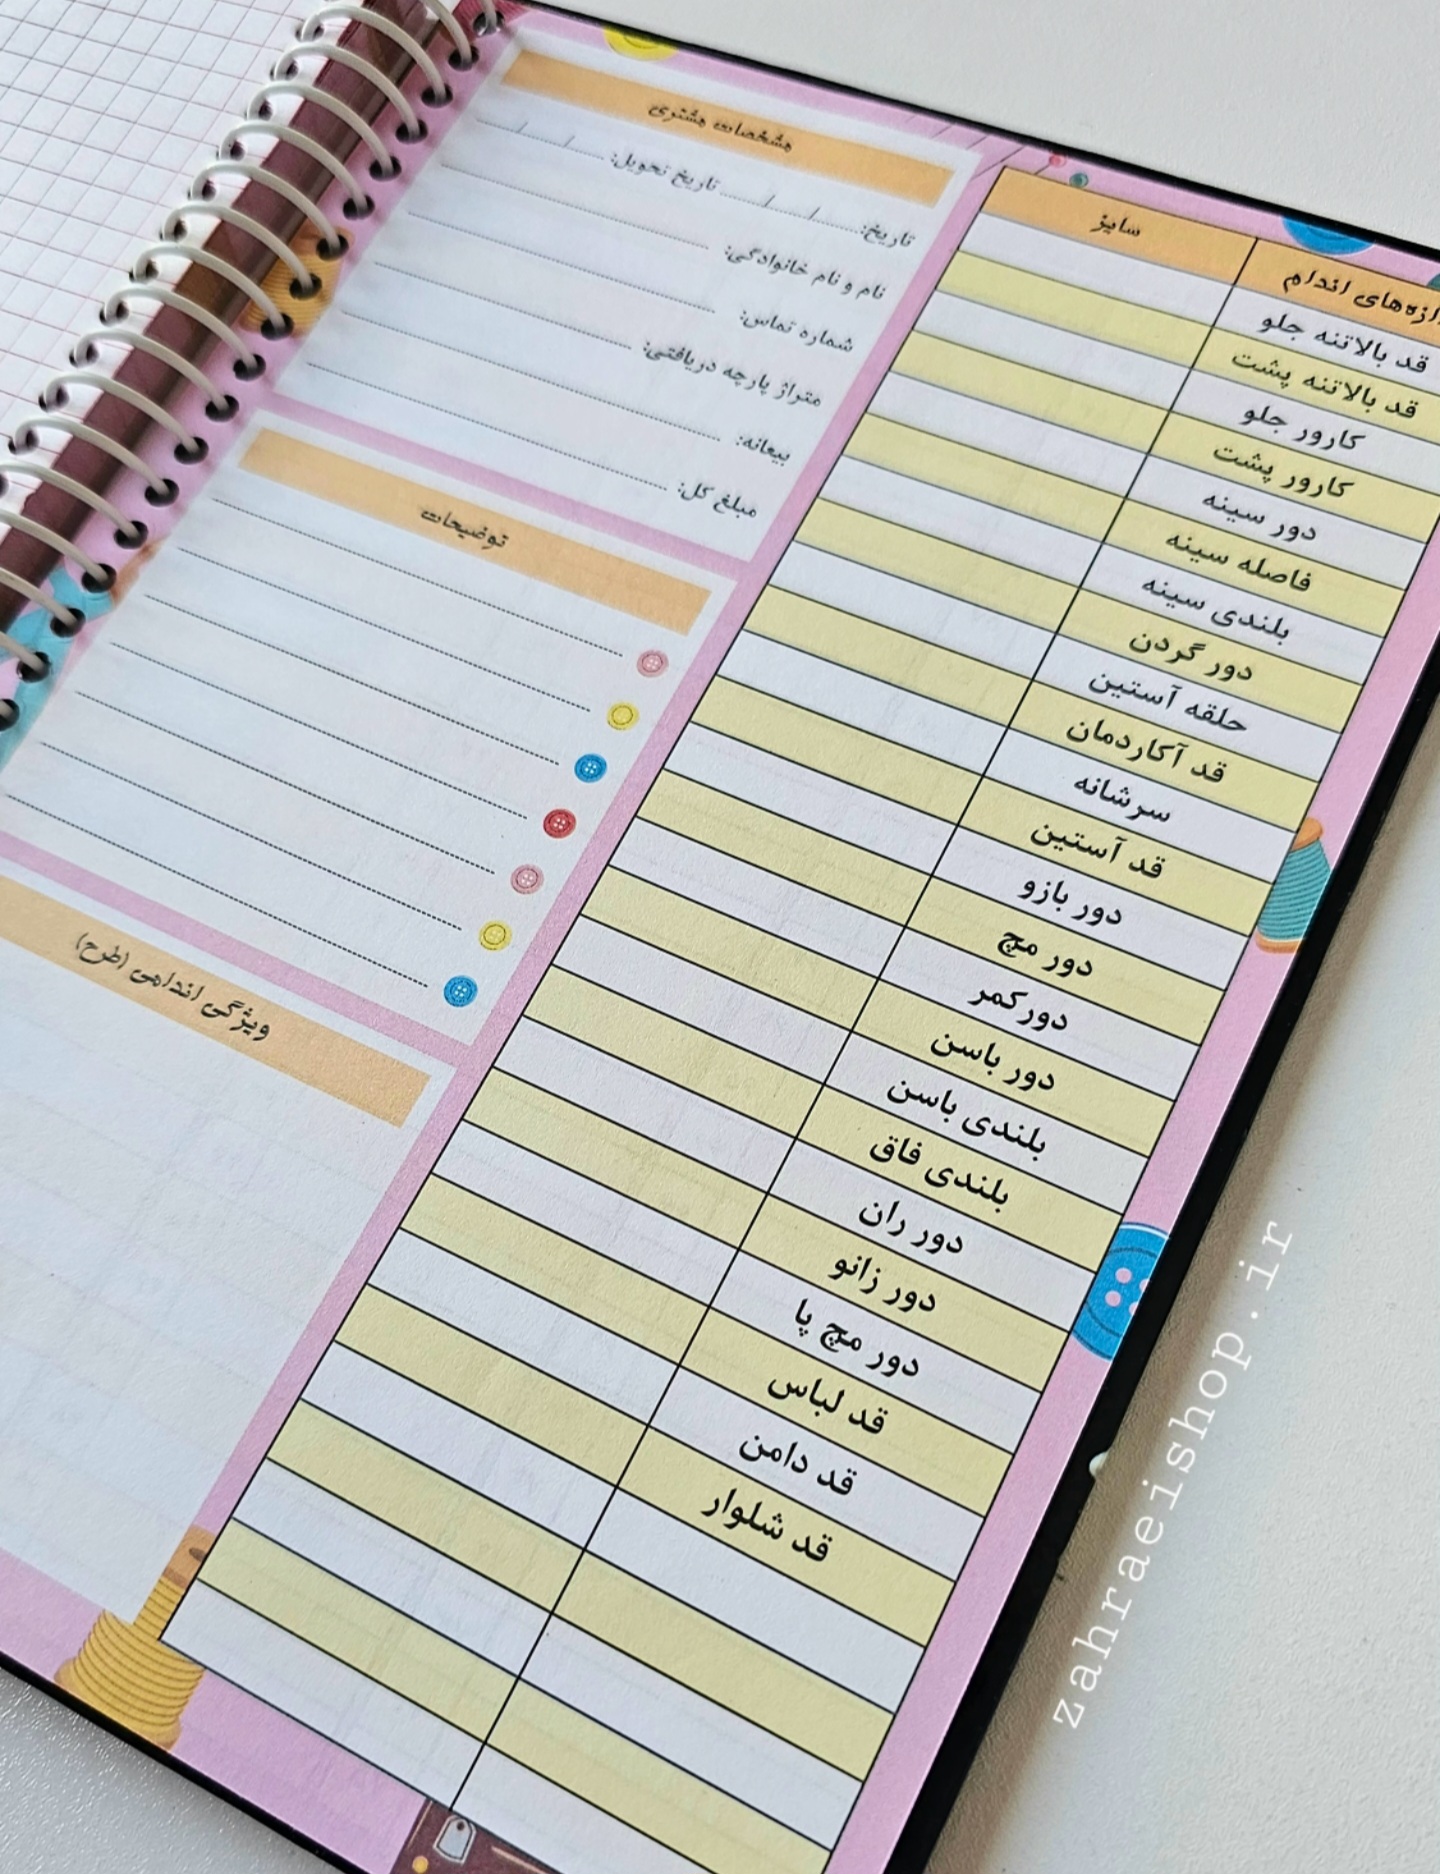 سایز
اندازه‌های اندام
قد بالاتنه جلو
قد بالاتنه پشت
کارور جلو
کارور پشت
دور سینه
فاصله سینه
بلندی سینه
دور گردن
حلقه آستین
قد آکاردمان
سرشانه
قد آستین
دور بازو
دور مچ
دورکمر
دور باسن
بلندی باسن
بلندی فاق
دور ران
دور زانو
دور مچ پا
قد لباس
قد دامن
قد شلوار
مشخصات مشتری
تاریخ: ..../..../.... تاریخ تحویل: ..../..../....
نام و نام خانوادگی:
شماره تماس:
متراژ پارچه دریافتی:
بیعانه:
مبلغ کل:
توضیحات
ویژگی اندامی (طرح)
zahraeishop.ir